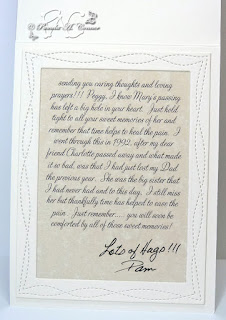 © Pamela A. Connor
sending you caring thoughts and loving
prayers!!! Peggy, I know Mary's passing
has left a big hole in your heart. Just hold
tight to all your sweet memories of her and
remember that time helps to heal the pain. I
went through this in 1992, after my dear
friend Charlotte passed away and what made
it so bad, was that I had just lost my Dad
the previous year. She was the big sister that
I had never had and to this day, I still miss
her but thankfully time has helped to ease the
pain. Just remember..... you will soon be
comforted by all of those sweet memories!
Lots of Hugs!!!
Pam